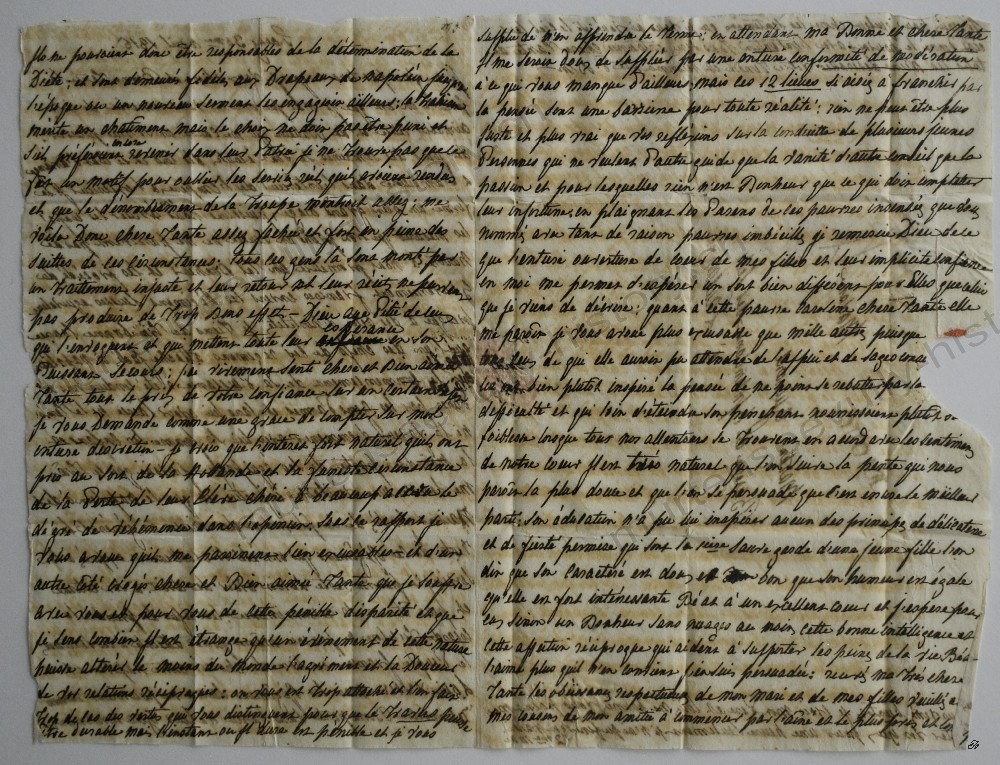 Ils ne pouvoient donc être responsables de la détermination de la
Diète; et sont demeurés fidels aux Drapeaux de napoléon jusqu'
l'epoque ou un nouveau serment les engagea ailleurs; la
mérite un chatiment mais le chef ne doit pas être puni et
s'ils préferoient encore revenir dans leur Patrie je ne trouve pas que ce
fut un motif pour oublier les services qu'ils avoient rendus
et que le dénombrement de la Troupe montroit assez; me
voila Donc chere Tante assez fachée et fort en peine des
suites de ces circonstances; tous ces gens là sont montés par
un Traittement injuste et leur retour et leur récit, ne peuvent
pas produire de trop bons effets — Dieu aye Pitié de ceux
qui l'invoquent et qui mettent toute leur confiance en son
Puissant secours; j'ai vivement senti chere et Bien aimée
Tante tout le prix de votre confiance sur un certain
je vous Demande comme une grace de compter sur mon
entiere discretion — je crois que l'interet fort naturel qu'ils ont
pris au sort de la Hollande et la funeste circonstance
de la Perte de leur Elève chéri a beaucoup
dégré de véhémence dans l'opinion; sous ce rapport je
vous avoue qu'ils me paroissent bien excusables — et d'un
autre coté croyés chere et Bien aimée Tante que je souffre
avec vous et pour vous de cette pénible disparité et que
je sens combien Il est étrange qu'un évènement de cette nature
puisse altérer le moins du monde l'agrément et la Douceur
de vos relations réciproques; on vous est trop attaché et l'on fait
trop de cas des vertus qui vous distinguent pour que le
être durable mais l'instant où Il dure est pénible et je vous
supplie de m'en apprendre le terme; en attendant ma Bonne et chere Tante
Il me seroit doux de suppléer par une entiere conformité de
à ce qui vous manque d'ailleurs; mais ces 12 lieües si aisées à franchir par
la pensée sont une barriere pour toute réalité; rien ne peut être plus
juste et plus vrai que vos reflexions sur la conduite de plusieurs jeunes
Personnes qui ne veulent d'autre guide que la vanité d'autre conseil que la
passion et pour lesquelles rien n'est Bonheur que ce qui doit completter
leur infortune; en plaignant les Parens de ces pauvres insensées que vous
nommés avec tant de raison pauvres imbécilles je remercie Dieu de ce
que l'entiere ouverture de coeur de mes filles et leur implicite confiance
en moi me permet d'espérer un sort bien différent pour Elles que celui
que je viens de décrire; quant à cette pauvre Caroline chere Tante elle
me paroit je vous avoue plus excusable que mille autres puisque
ceux de qui elle auroit pu attendre de l'appui et de sages
lui ont bien plutôt inspiré la pensée de ne point se rebutter par la
difficulté et qui loin d'éteindre son penchant nourrissoient plutôt sa
foiblesse lorsque tous nos allentours se trouvent en accord avec les sentimens
de notre coeur Il est très naturel que l'on suive la pente qui nous
paroit la plus douce et que l'on se persuade que c'est encore le meilleur
parti; son éducation n'a pu lui inspirer aucun des principes de délicatesse
et de fierté permise qui sont la sauve garde d'une jeune fille l'on
dit que son caractère est doux et bon que son humeur est égale
qu'elle est fort intéressante Béat à un excellent coeur et j'espère pour
eux sinon un Bonheur sans nuages au moins cette bonne intelligence et
cette affection réciproque qui aident à supporter les peines de la vie Béat
l'aime plus qu'il n'en convient j'en suis persuadée; recevés ma très chere
Tante les obéissances respectueuses de mon mari et de mes filles
mes cousins de mon amitié à commencer par l'ainé et le plus